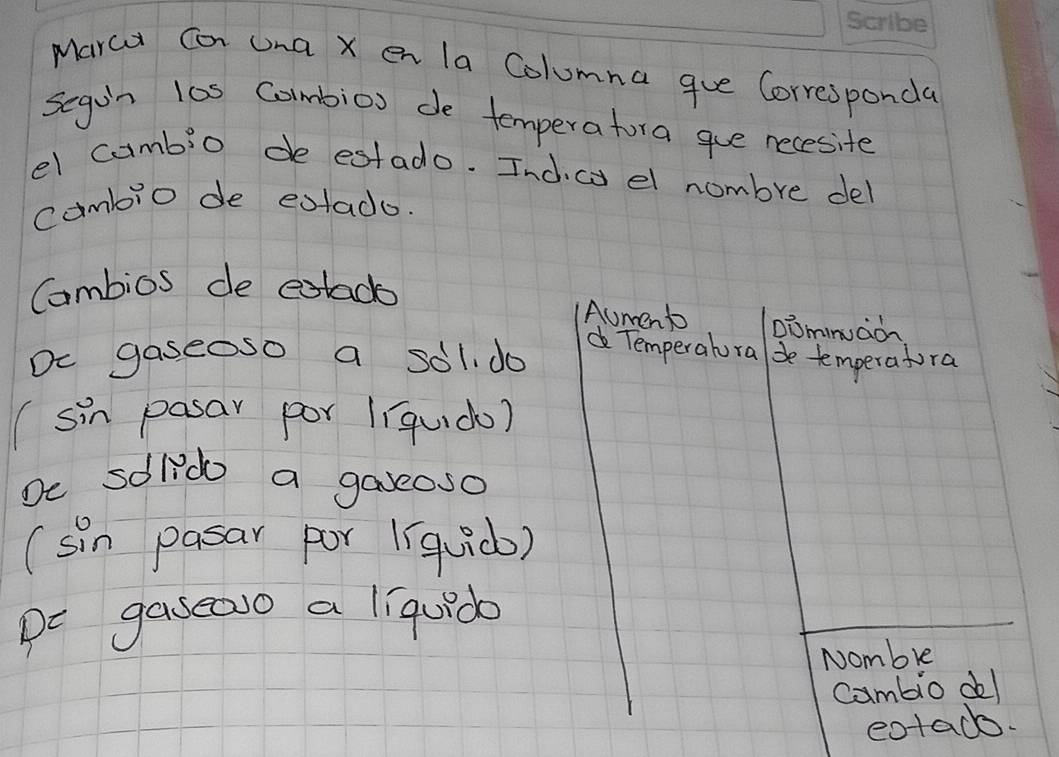 Scribe
Marca con una x en la columna que corresponda
según los cambios de temperatura que necesite
el cambio de estado. Indica el nombre del
cambio de estado.
Cambios de estado
Aumento
de Temperatura
Disminución
de temperatura
De gaseoso a sólido
(sin pasar por líquido)
De sólido a gaseoso
(sin pasar por líquido)
De gaseoso a líquido
Nombre
Cambio del
estado.